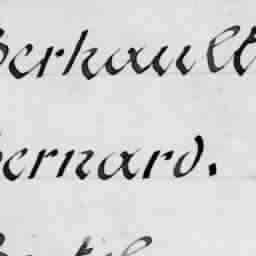 Berhault
Bernard.